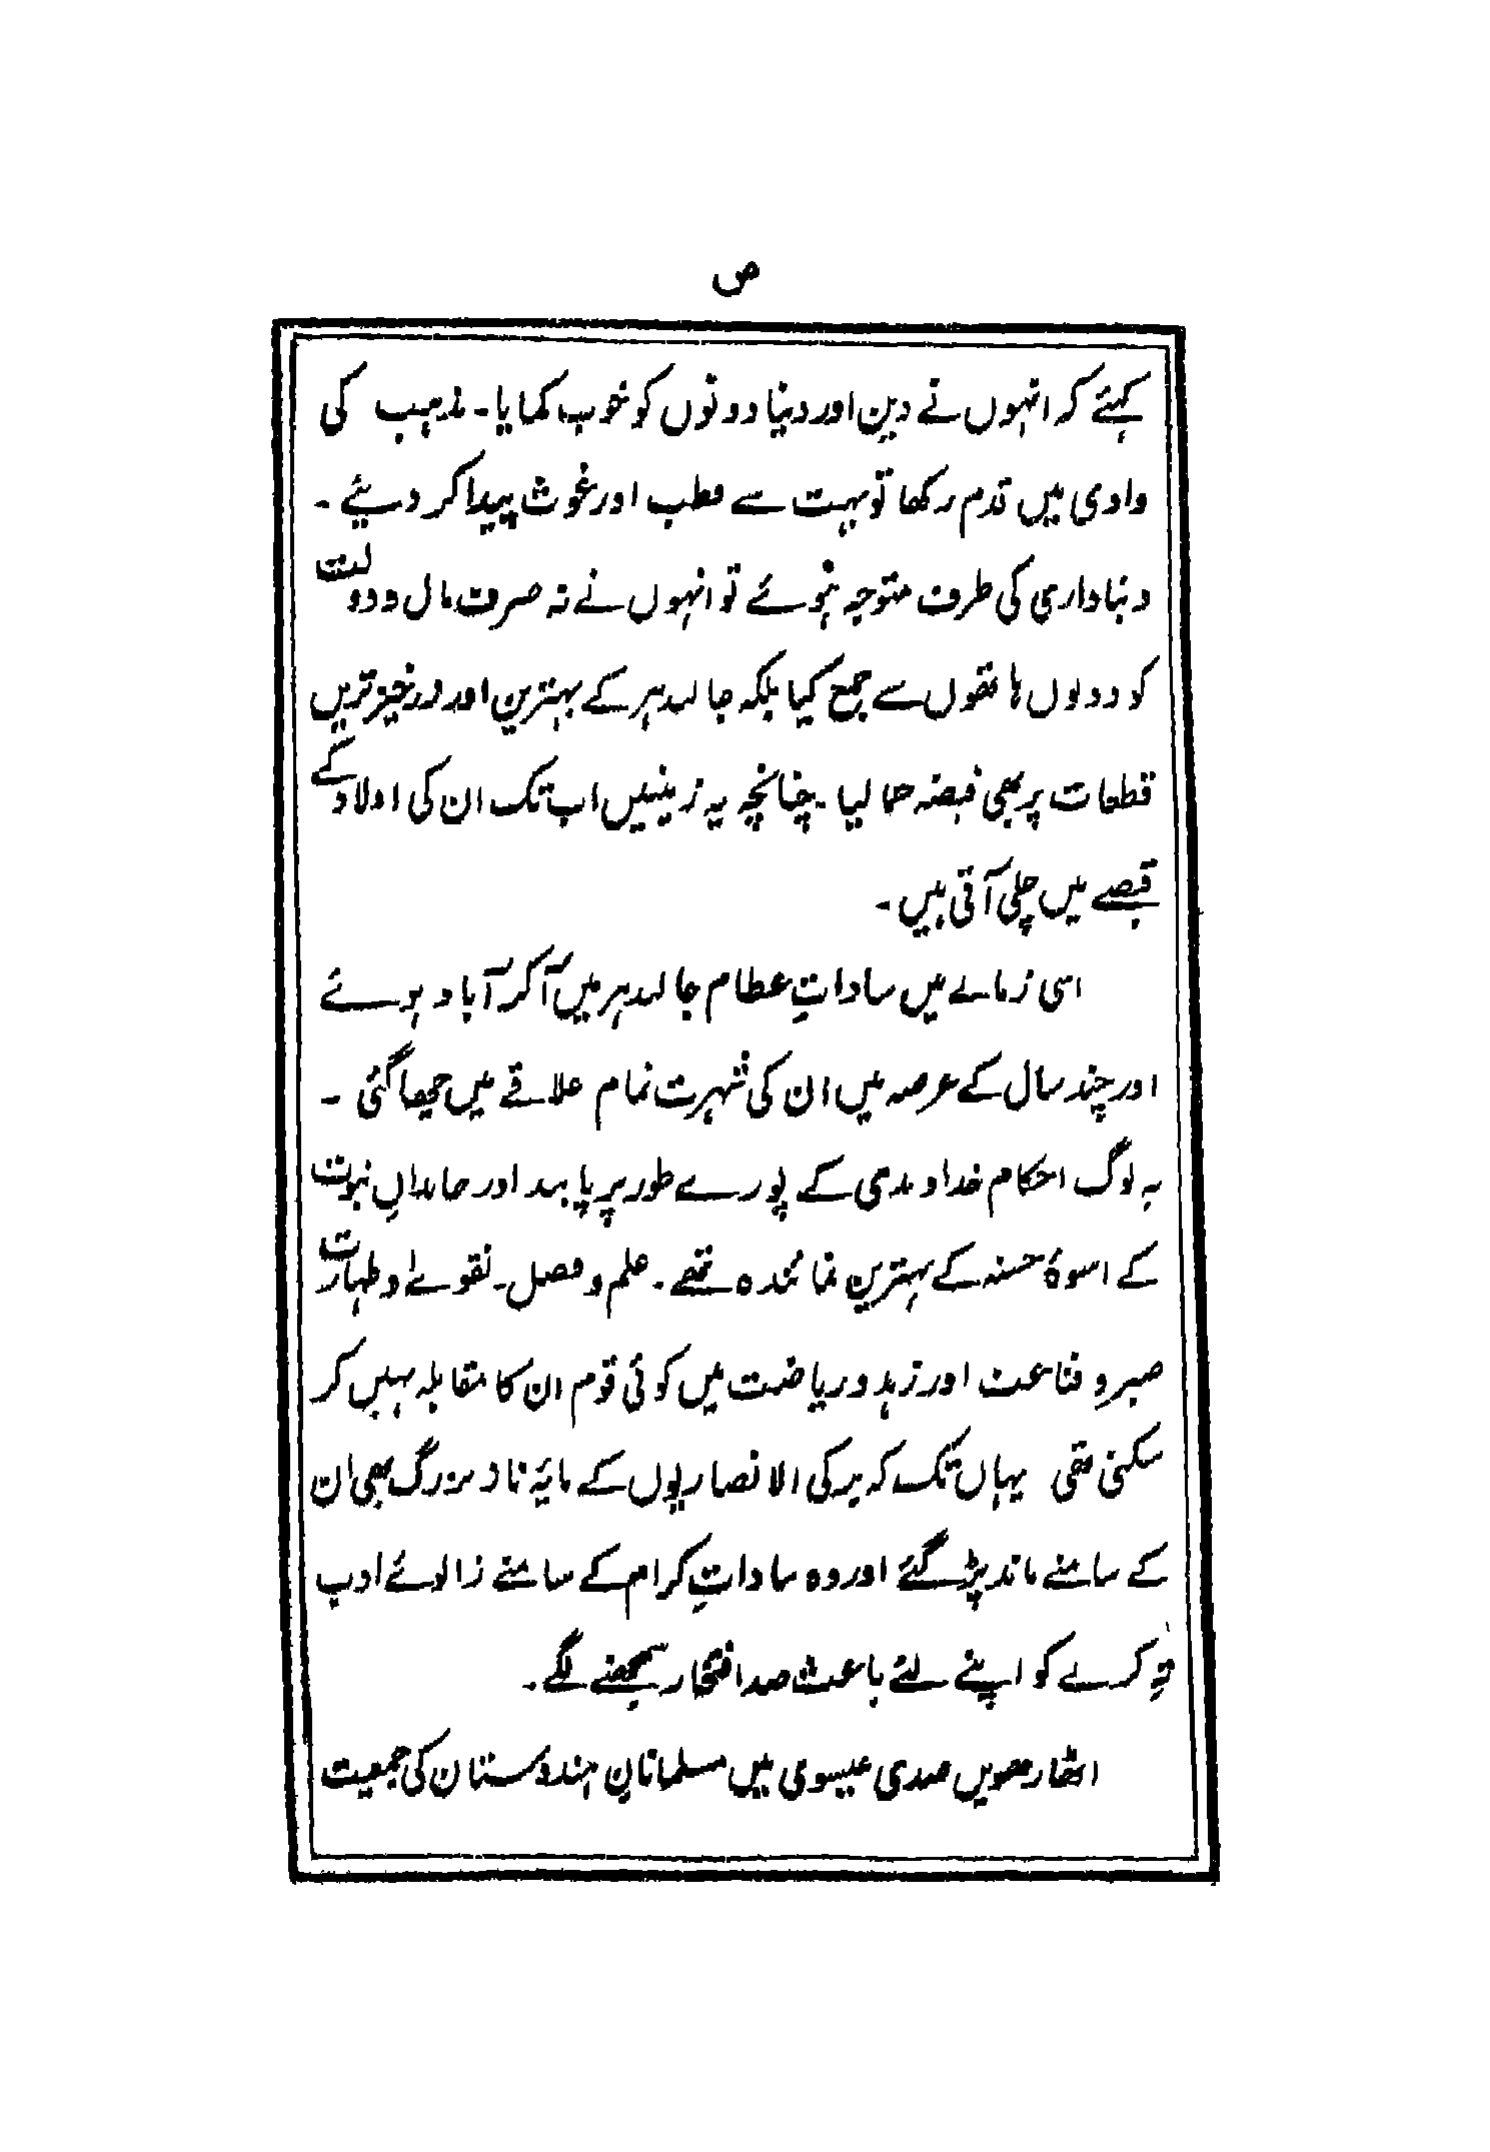 ص
کہئے کہ انہوں نے دین اور دنیا دونوں کو خوب کمایا۔ مذہب کی
وادی میں قدم رکھا تو بہت سے قطب اور غوث پیدا کر دیئے۔
دنیاداری کی طرف متوجہ ہوئے تو انہوں نے نہ صرف مال و دولت
کو دونوں ہاتھوں سے جمع کیا بلکہ جالندہر کے بہترین اور زرخیز ترین
قطعات پر بھی قبضہ جما لیا۔ چنانچہ یہ زمینیں اب تک ان کی اولاد کے
قبضے میں چلی آتی ہیں۔
اسی زمانے میں ساداتِ عظام جالندہر میں آ کر آباد ہوئے
اور چند سال کے عرصہ میں ان کی شہرت تمام علاقے میں چھا گئی۔
یہ لوگ احکام خداوندی کے پورے طور پر پابند اور خاندانِ نبوت
کے اسوۂ حسنہ کے بہترین نمائندہ تھے۔ علم و فضل۔ تقوےٰ و طہارت
صبر و قناعت اور زہد و ریاضت میں کوئی قوم ان کا مقابلہ نہیں کر
سکتی تھی یہاں تک کہ برکی الانصاریوں کے مایۂ ناز بزرگ بھی ان
کے سامنے ماند پڑ گئے اور وہ ساداتِ کرام کے سامنے زانوئے ادب
تہِ کرنے کو اپنے لئے باعث صد افتخار سمجھنے لگے۔
اٹھارھویں صدی عیسوی میں مسلمانانِ ہندوستان کی جمعیت